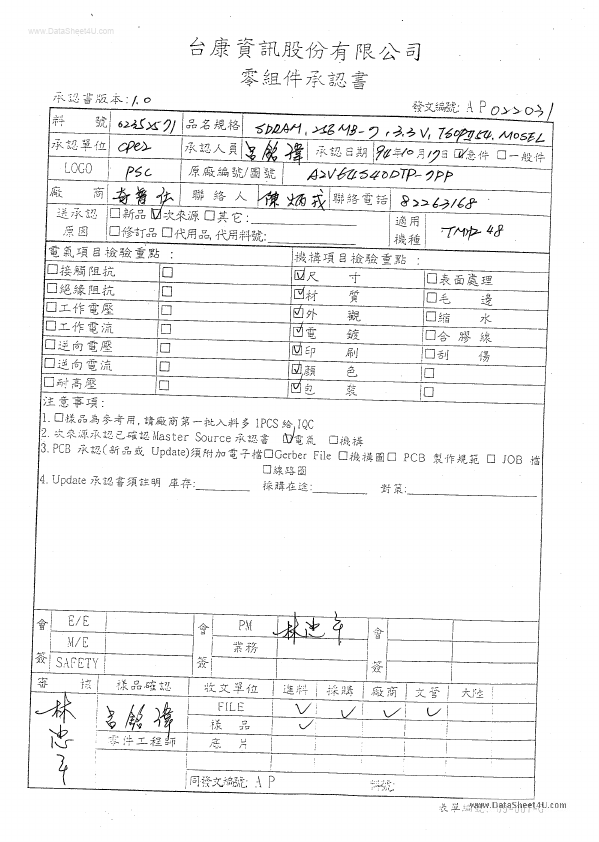 www.DataSheet4U.com
台康資訊股份有限公司
零組件承認書
承認書版本: 1.0
發文編號: AP022031
料 號 62352571 品名規格 SDRAM, 256MB-7, 3.3V, TSOPII54, MOSEL
承認單位 CPE2 承認人員 呂銘瑋 承認日期 94年10月17日 ☑急件 □一般件
LOGO PSC 原廠編號/圖號 A2V64S40DTP-7PP
廠 商 聯絡人 陳炳戎 聯絡電話 82263168
送承認原因 □新品 ☑次來源 □其它:
□修訂品 □代用品,代用料號:
適用機種
電氣項目檢驗重點 : 機構項目檢驗重點 :
□接觸阻抗 □ ☑尺 寸 □表面處理
□絕緣阻抗 □ ☑材 質 □毛 邊
□工作電壓 □ ☑外 觀 □縮 水
□工作電流 □ ☑電 鍍 □合膠線
□逆向電壓 □ ☑印 刷 □刮 傷
□逆向電流 □ ☑顏 色 □
□耐高壓 □ ☑包 裝 □
注意事項:
1. □樣品為參考用,請廠商第一批入料多 1PCS 給 IQC
2. 次來源承認已確認 Master Source 承認書 ☑電氣 □機構
3. PCB 承認(新品或 Update)須附加電子檔□Gerber File □機構圖□ PCB 製作規範 □ JOB 檔
□線路圖
4. Update 承認書須註明 庫存: 採購在途: 對策:
會簽 E/E 會簽 PM 林忠平 會簽
M/E 業務
SAFETY
審 核 樣品確認 收文單位 進料 採購 廠商 文管 大陸
林忠平 呂銘瑋 FILE ✓ ✓ ✓ ✓
樣 品 ✓
零件工程師 底 片
同發文編號: AP 料號:
表單編號:
www.DataSheet4U.com